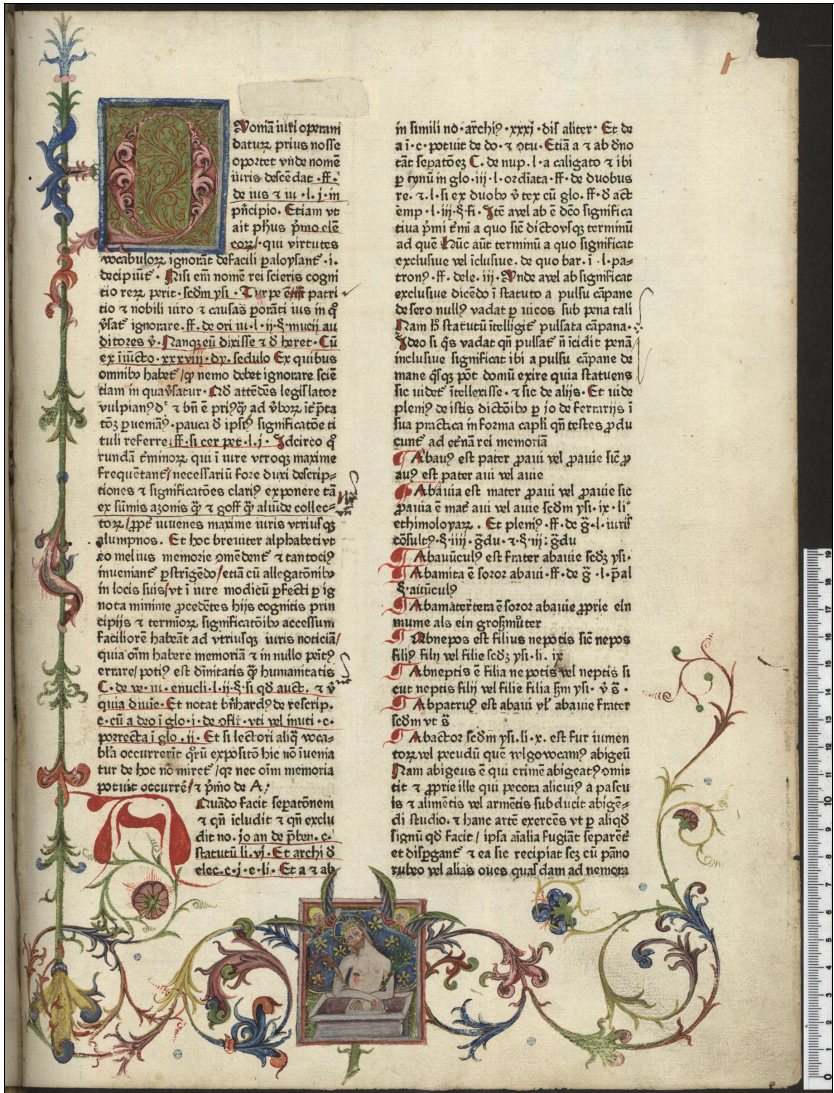 Q
Voniā iuri operam
datur prius nosse
oportet vnde nomē
iuris descēdat . ff.
de ius ⁊ iu . l . j . in
prīcipio . Etiam vt
ait phūs pmo elē
cor . qui virtutes
vocabulorꝝ ignorāt defacili paloysant . i .
decipiūt . Nisi em̄ nomē rei scieris cogni
tio rerꝝ perit . scdm ysi . Turpe patri
tio ⁊ nobili viro ⁊ causas porāti ius in q̄
v̄sat ignorare . ff . de ori iu . l . ij . §. mucij au
ditores v̄ . Nanqꝫ eū dixisse ⁊ heret . Cū
ex iiūcto . xxxviij . dx . sedulo Ex quibus
omnibꝰ habet / qꝫ nemo debet ignorare sciē
tiam in qua v̄satur . Nō attēdēs legislator
vulpianꝰ ⁊ bn̄ ē priꝰ ad v̄borꝝ īt̄pta
tōꝫ ꝑueniā . pauca ipsiꝰ significatōe ti
tuli referre . ff . si cer pet . l . j . Idcirco q̄
rundā t̄minorꝝ qui ī iure vtroqꝫ maxime
frequētant / necessariū fore duxi descrip-
tiones ⁊ significatōes clariꝰ exponere tā
ex sūmis azonis ꝙ̄ ⁊ goff ꝙ̄ aliūde collec-
torꝝ / ppt̄ iuuenes maxime iuris vtriusqꝫ
alumpnos . Et hoc breuiter alphabeti vt
eo melius memorie ōmēdent ⁊ tantociꝰ
inueniant ꝑstrīgēdo / etiā cū allegatōnibꝰ
in locis suis / vt ī iure modicū ꝓfecti ꝑ ig
nota minime ꝓcedētes hijs cognitis prin
cipijs ⁊ termiorꝝ significatōibꝰ accessum
faciliorē habeāt ad vtriusqꝫ iuris noticiā /
quia oīm habere memoriā ⁊ in nullo
errare / potiꝰ est diuinitatis ꝙ̄ humanitatis
C . de v . iu . enucli . l . ij . § . si qd̄ auct . ⁊ v̄
quia diuie . Et notat bn̄hardꝰ de rescrip .
c . cū a deo ī glo . i . de ofit . vti vel muti . c .
porrecta ī glo . ij . Et si lectori aliq̄ voca-
bla occurrerit qrū expositō hic nō iuenia
tur de hoc nō miret / qꝫ nec oīm memoria
potuit occurrē / ⁊ pmo de A ;
A
Quādo facit sepatōnem
⁊ qn̄ icludit ⁊ qn̄ exclu
dit no . jo an de p̄ben . c .
statutū li . vj . Et archi d̄
elec . c . j . e . li . Et a ⁊ ab
in simili nō . archiꝰ . xxxj . dis aliter . Et de
a ī . c . potuit de do . ⁊ otu . Etiā a ⁊ ab d̄no
tāt sepatōeꝫ C . de nup . l . a caligato ⁊ ibi
ꝑ cynū in glo . iij . l . ordīata . ff . de duobus
re . ⁊ . l . si ex duobꝰ v̄ tex cū glo . ff . d̄ act
emp . l . iij . § . fi . Itē a vel ab ē dēo significa
tiua pmi t̄mi a quo siē dictōvsqꝫ terminū
ad quē Hūc aūt terminū a quo significat
exclusiue vel iclusiue . de quo bar . ī . l . pa-
tronꝰ . ff . de le . iij . Vnde a vel ab significat
exclusiue dicēdo ī statuto a pulsu cāpane
de sero nullꝰ vadat ꝑ vicos sub pena tali
Nam h̄ statutū ītelligit pulsata cāpana .
Ideo si q̄s vadat qn̄ pulsat nō īcidit penā
inclusiue significat ibi a pulsu cāpane de
mane q̄sqꝫ pōt domū exire quia statuens
sic videt ītellexisse . ⁊ sic de alijs . Et vide
pleniꝰ de istis dictōibꝰ ꝑ jo de ferrarijs ī
sua practica in forma capli qn̄ testes ꝓdu
cunt ad et̄nā rei memoriā
¶ Abauꝰ est pater ꝓaui vel ꝓauie siē ꝓ
auꝰ est pater aui vel auie
¶ Abauia est mater ꝓaui vel ꝓauie sic
ꝓauia ē mat̄ aui vel auie scdm ysi . ix . li
ethimoloyarꝝ . Et pleniꝰ . ff . de g̈ . l . iuris
cōsultꝰ . § . iiij . g̈du . ⁊ . § . iij : g̈du
¶ Abauūculꝰ est frater abauie scdꝫ ysi .
¶ Abamita ē soror abaui . ff . de g̈ . l . p̄al
§ . auūculꝰ
¶ Abamatertera ē soror abauie ꝓprie ein
mume als ein großmůter
¶ Abnepos est filius nepotis siē nepos
filiꝰ filij vel filie scdꝫ ysi . li . ix
¶ Abneptis ē filia nepotis vel neptis si
cut neptis filij vel filie filia scdm ysi . v̄ s̄ .
¶ Abpatruꝰ est abaui vl abauie frater
scdm vt s̄
¶ Abactor scdm ysi . li . x . est fur iumen
torꝝ vel pecudū quē vulgo vocamꝰ abigeū
Nam abigeus ē qui crimē abigeatꝰ omit
tit ⁊ ꝓprie ille qui pecora alicuiꝰ a pascu
is ⁊ alimētis vel armētis subducit abigē-
di studio . ⁊ hanc artē exercēs vt ꝑ aliqd̄
signū qd̄ facit / ipsa aīalia fugiāt separēt
et dispgant ⁊ ea sic recipiat scꝫ cū pāno
rubeo vel alias oues quasdam ad nemora